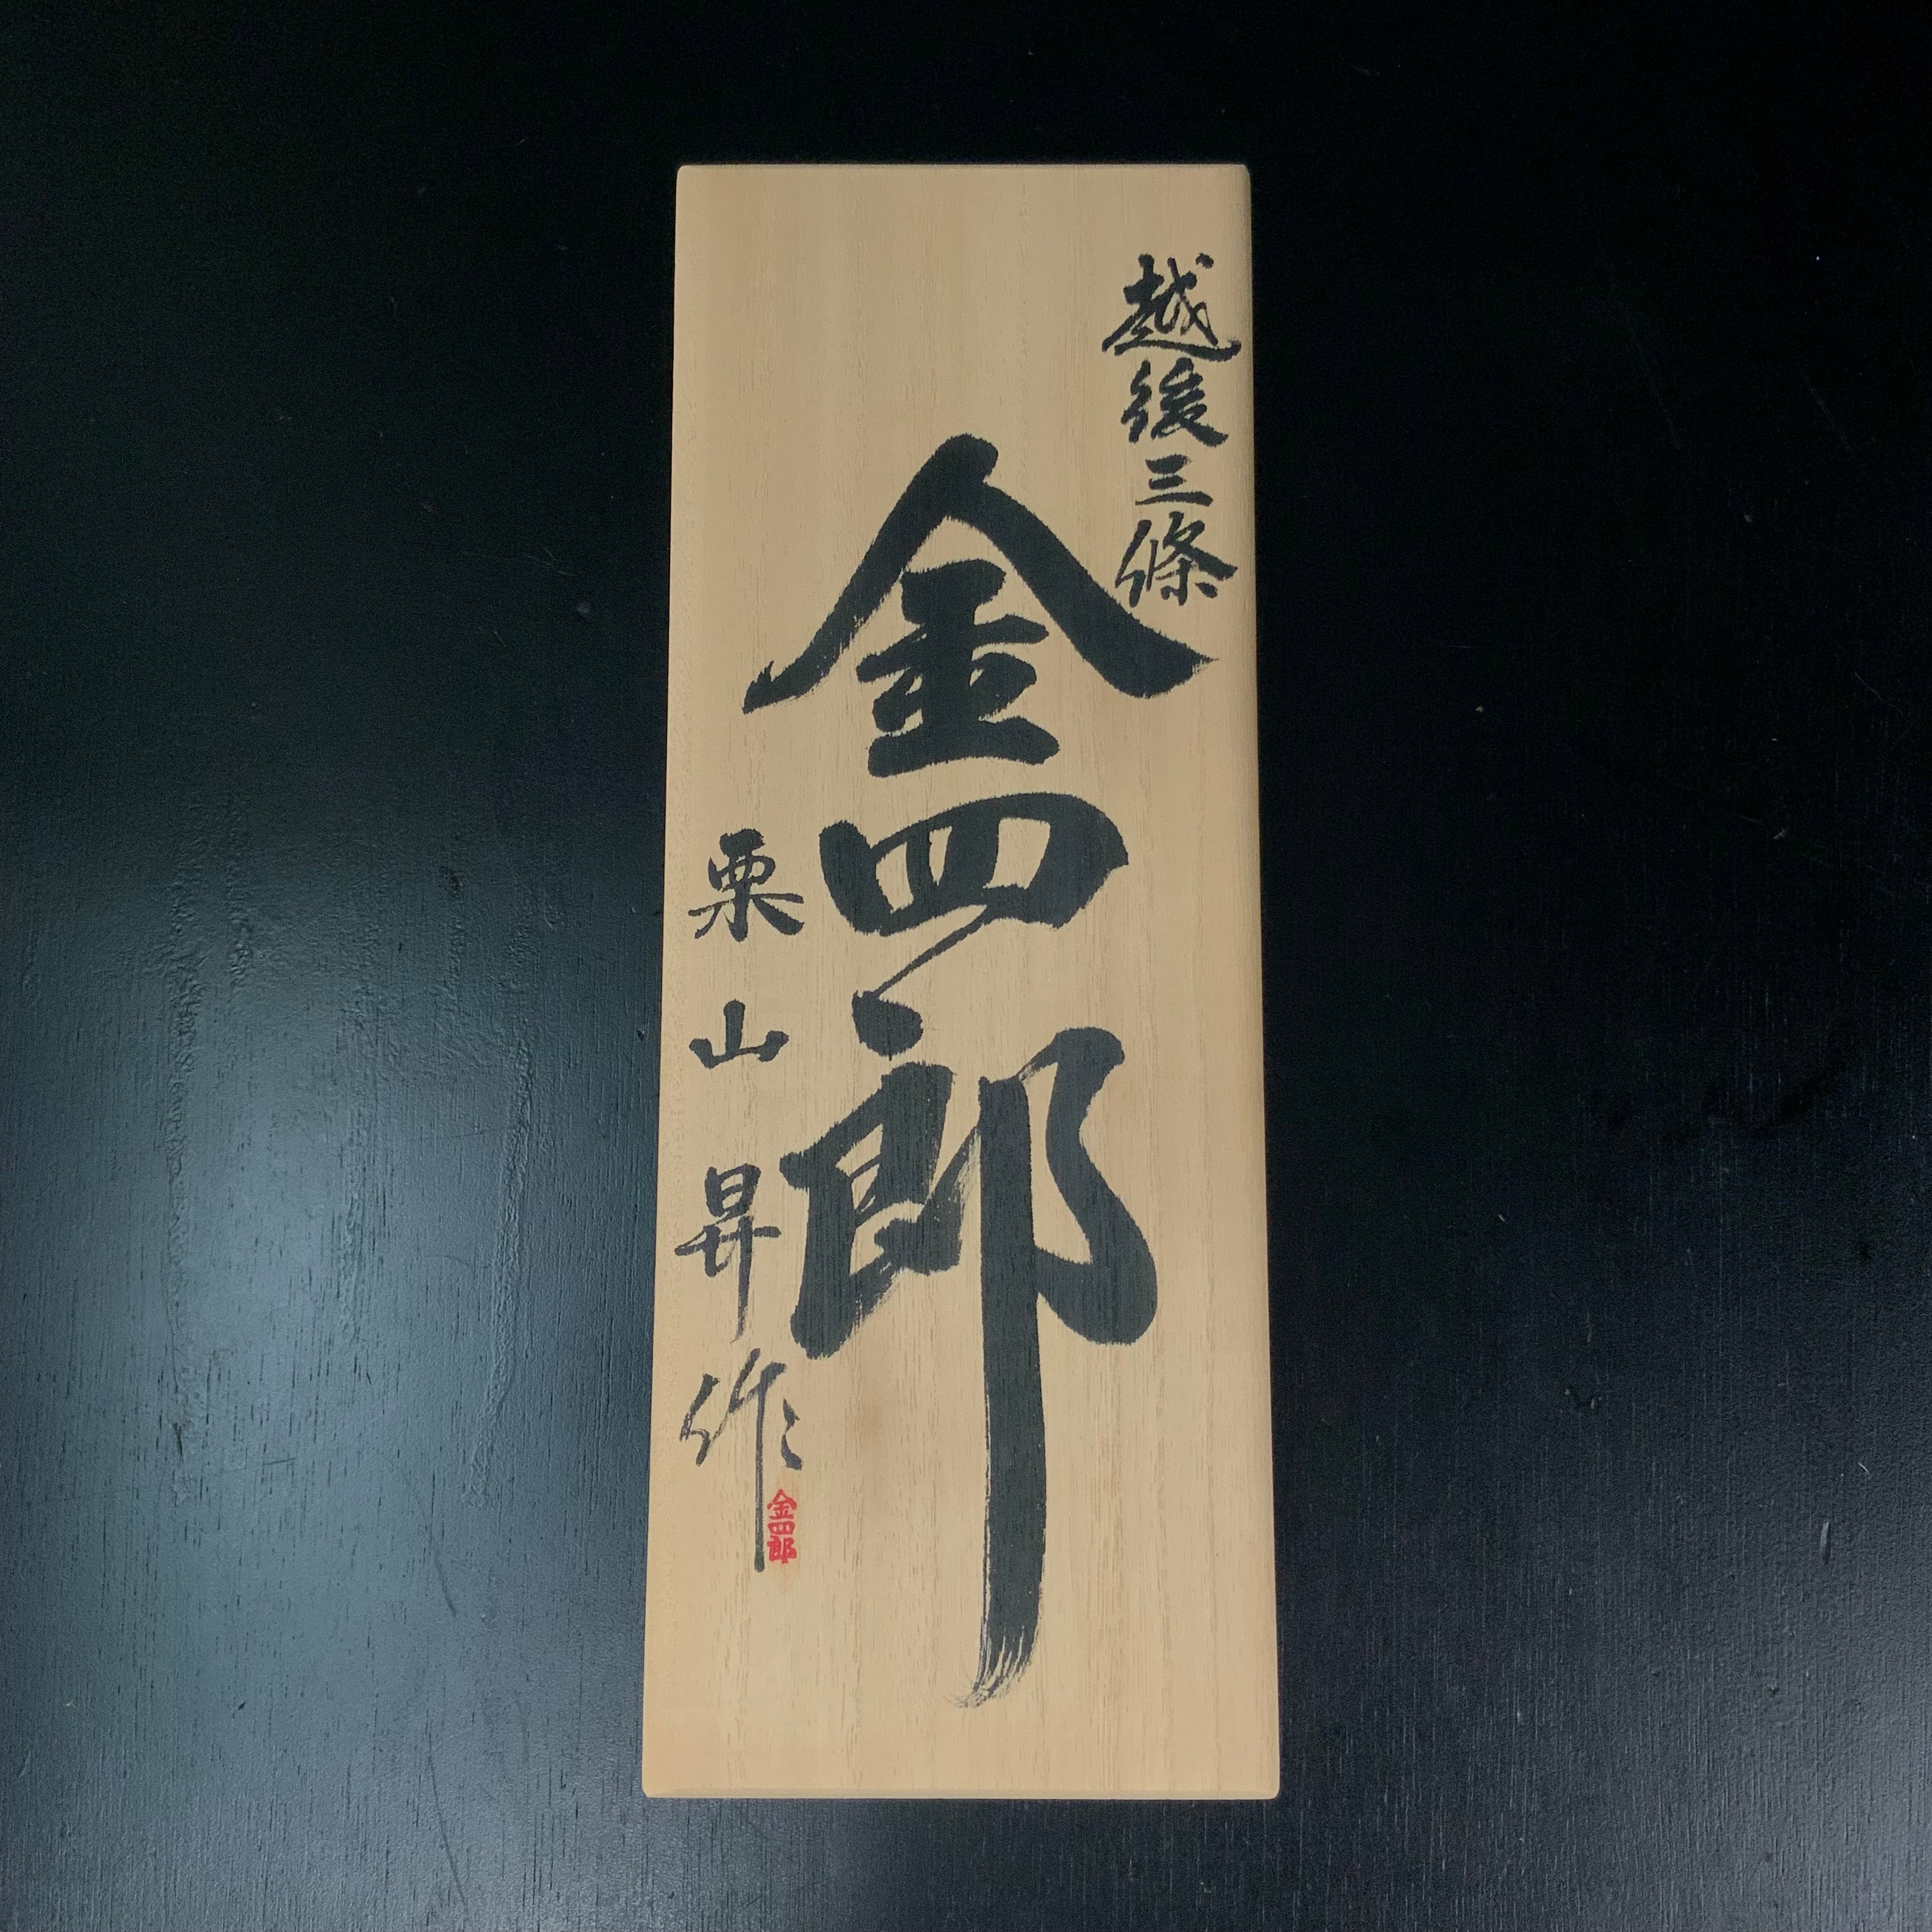 越後三條
金四郎
栗山昇作
金四郎